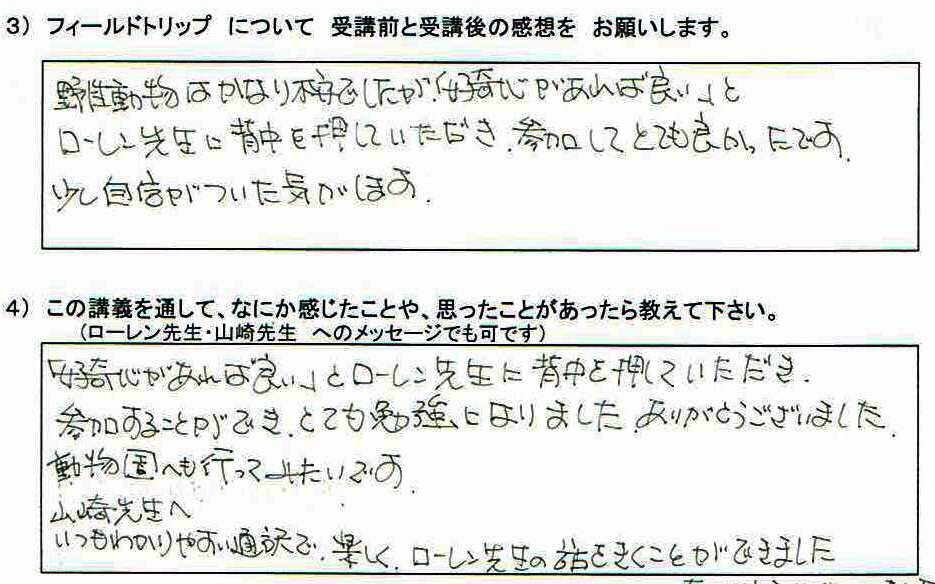 3) フィールドトリップ について 受講前と受講後の感想を お願いします。
野性動物はかなり不安でしたが、「好奇心があれば良い」と
ローレン先生に背中を押していただき、参加してとても良かったです。
少し自信がついた気がします。
4) この講義を通して、なにか感じたことや、思ったことがあったら教えて下さい。
(ローレン先生・山崎先生 へのメッセージでも可です)
「好奇心があれば良い」とローレン先生に背中を押していただき、
参加することができ、とても勉強になりました。ありがとうございました。
動物園へも行ってみたいです
山崎先生へ
いつもわかりやすい通訳で、楽しく、ローレン先生の話をきくことができました